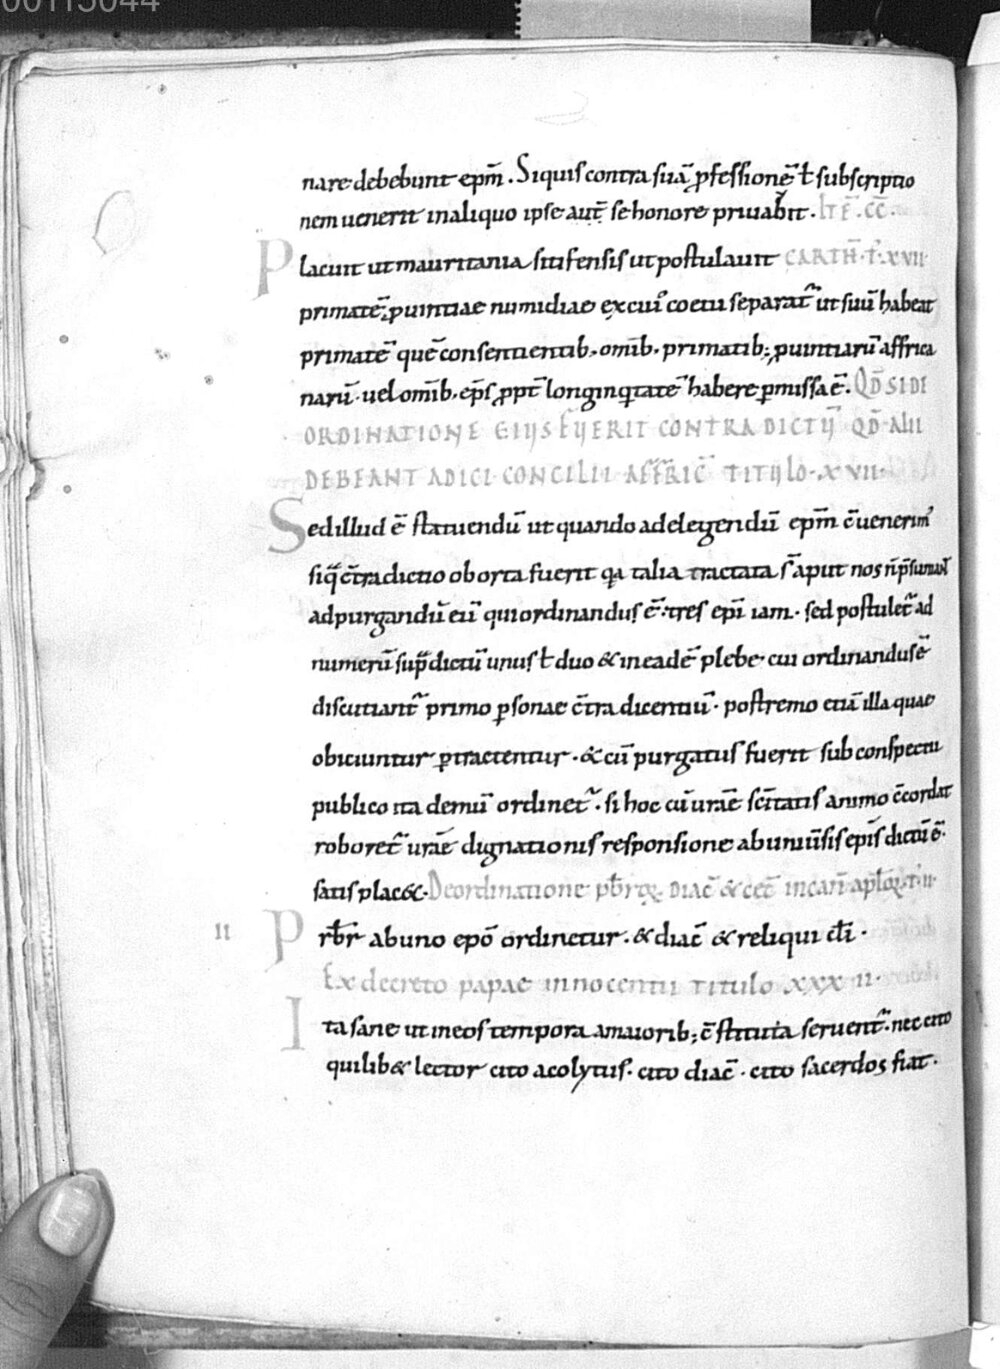 00115044
nare debebunt ep̄m. Siquis contra suā ꝓfessionē ł subscriptio
nem uenerit in aliquo ipse aut̄ se honore priuabit. ITĒ. CC̄.
Placuit ut mauritania sitifensis ut postulauit CARTH̄. T. XVII
primatē ꝓuintiae numidiae ex cui coetu separat ut suū habeat
primatē quē consentientib. om̄ib. primatib; ꝓuintiarū affrica
narū. uel om̄ib. ep̄s ꝓpt̄ longinqitatē habere ꝑmissa ē. QD̄ SI DE
ORDINATIONE EIUS FUERIT CONTRADICTŪ QD̄ ALII
DEBEANT ADICI CONCILII AFFRIC̄ TITULO. XVII.
Sed illud ē statuendū ut quando ad eleigendū ep̄m c̄uenerim
siq̄ c̄tradictio oborta fuerit qa talia tractata s̄ aput nos
ad purgandū eū qui ordinandus ē. tres ep̄i iam. sed postulet̄ ad
numerū sup̄dictū unus ł duo & in eadē plebe cui ordinandus ē
discutiant̄ primo ꝑsonae c̄tradicentiū. postremo etiā illa quae
obiciuntur ꝑtractentur. & cū purgatus fuerit sub conspectu
publico ita demū ordinet̄. si hoc cū urāe sc̄itatis animo c̄cordat
roboret̄ urāe dignationis responsione ab uniūsis ep̄is dictū ē.
satis plac&. De ordinatione pb̄roꝝ DIAC̄ & cet̄ in can̄ aplōꝝ. T. II.
II Prb̄r ab uno epō ordinetur. & diac̄ & reliqui cl̄i.
Ex decreto papae innocentii titulo XXXII.
Ita sane ut in eos tempora a maiorib; c̄stituta seruent̄. nec cito
quilib& lector cito acolytus. cito diac̄. cito sacerdos fiat.